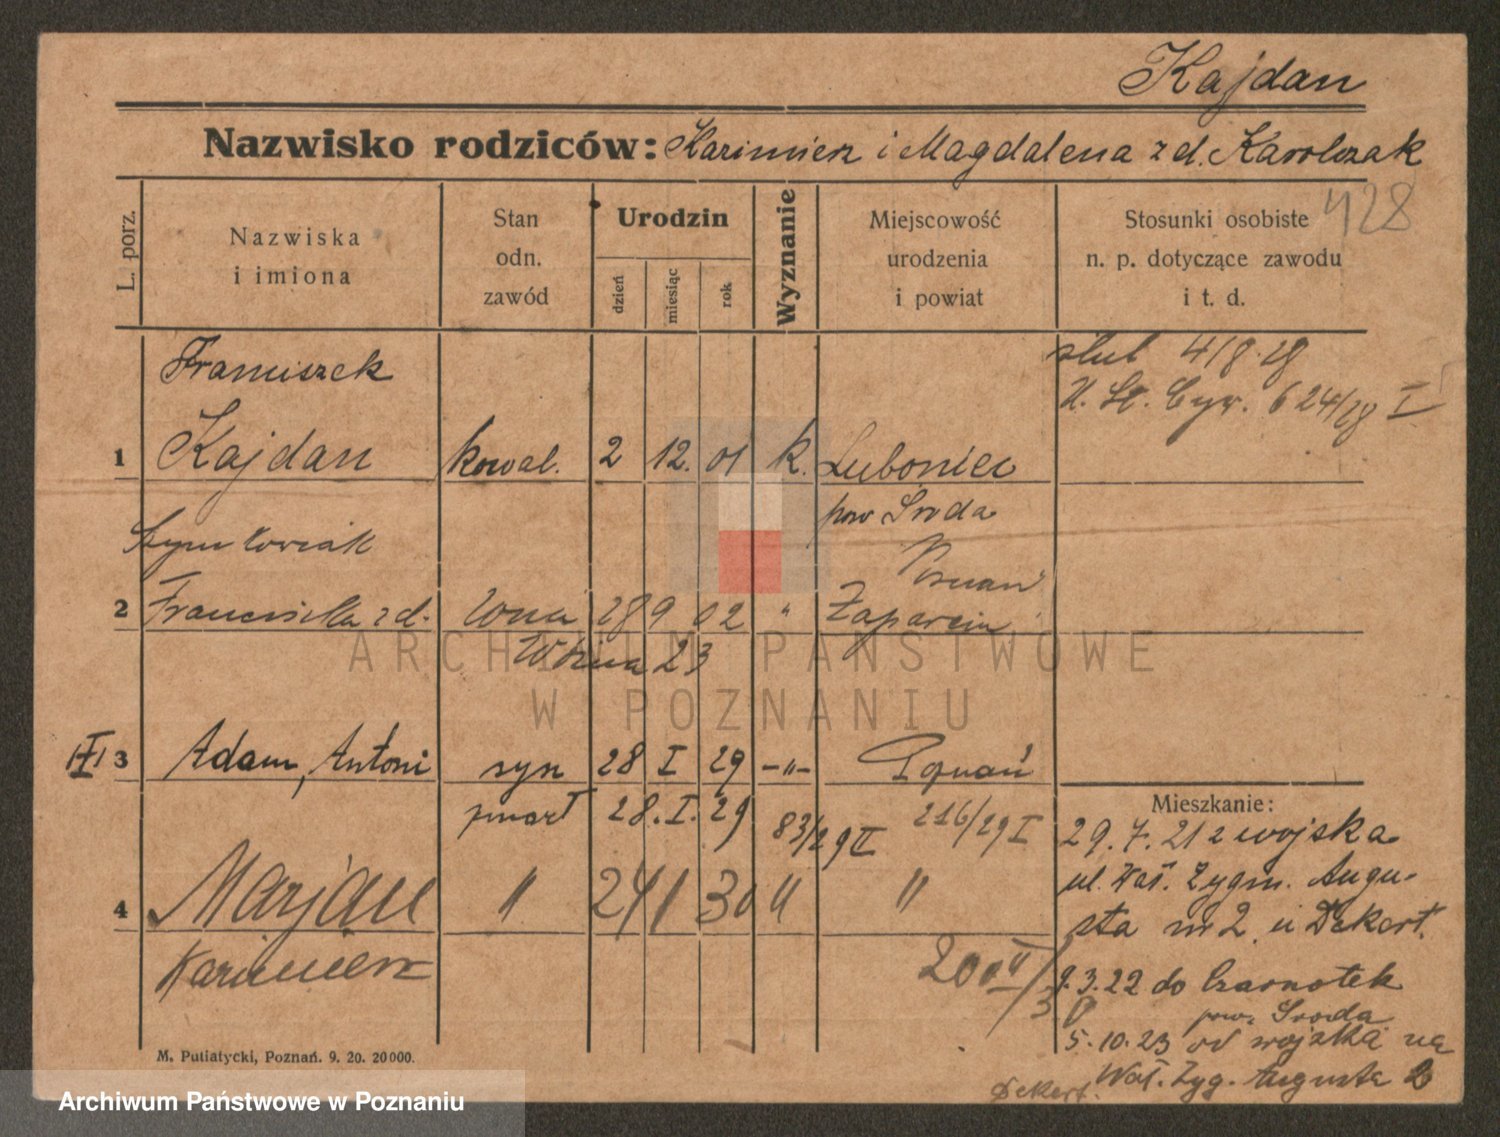 Kajdan
Nazwisko rodziców: Kazimierz i Magdalena z d. Karolczak
428
L. porz.
Nazwiska
i imiona
Stan
odn.
zawód
Urodzin
dzień
miesiąc
rok
Wyznanie
Miejscowość
urodzenia
i powiat
Stosunki osobiste
n. p. dotyczące zawodu
i t. d.
Franciszek
ślub 4/8.28
U. St. Cyw. 624/28 I
1 Kajdan kowal. 2 12. 01 k. Luboniec
pow Środa
Szymkowiak
Poznań
2 Franciszka z d. żona 28 9 02 "
23
III 3 Adam, Antoni syn 28 I 29 -"- Poznań
zmarł 28. I. 29 83/29 II 216/29 I
Mieszkanie:
29. 7. 21 z wojska
ul. Wał. Zygm. Augu-
sta nr 2 u Dekert.
4 Marjan " 24 1 30 " "
Kazimierz
200 II/30
9.3.22 do Czarnotek
pow. Środa
5.10.23 od wojska na
Wał. Zyg. Augusta 2
Dekert.
M. Putiatycki, Poznań. 9. 20. 20000.
ARCHIWUM PAŃSTWOWE
W POZNANIU
Archiwum Państwowe w Poznaniu